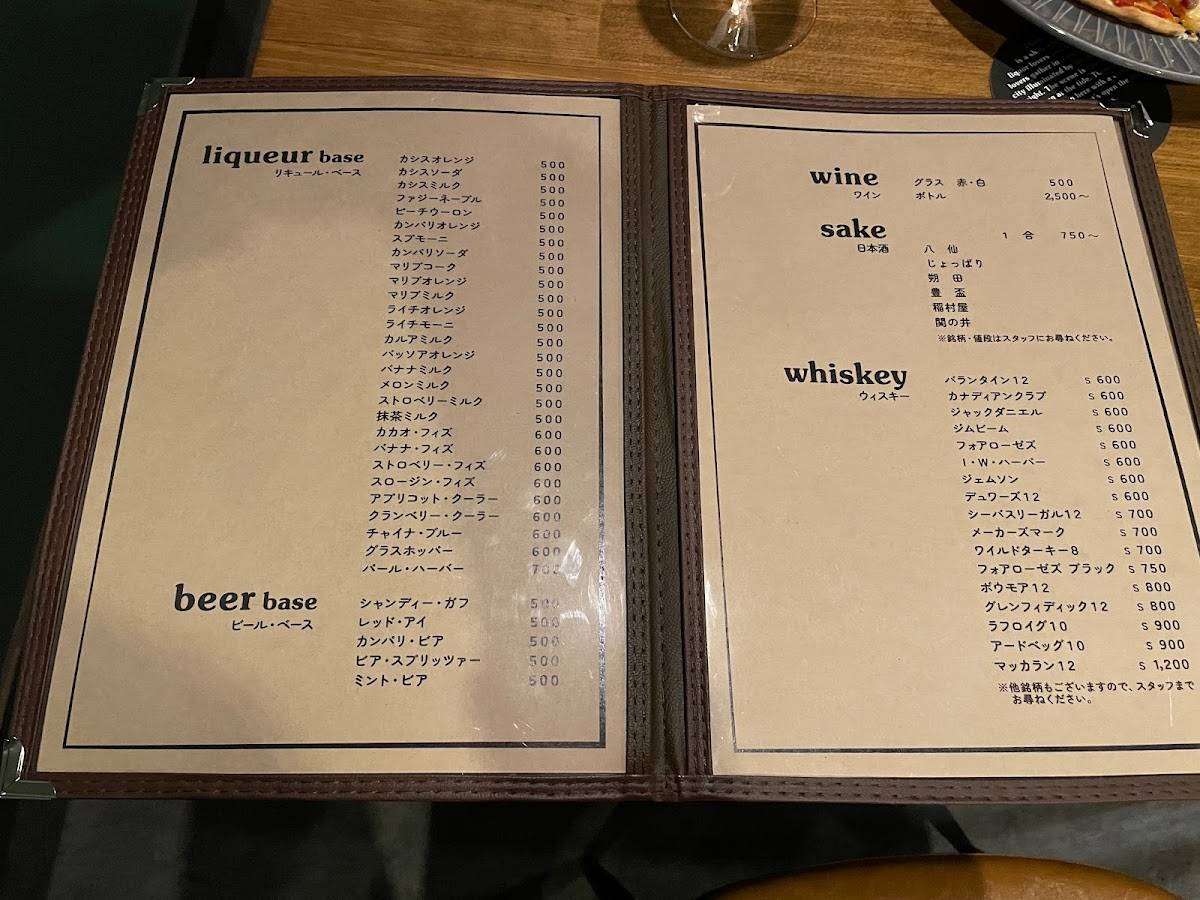 liqueur base
リキュール・ベース
カシスオレンジ 500
カシスソーダ 500
カシスミルク 500
ファジーネーブル 500
ピーチウーロン 500
カンパリオレンジ 500
スプモーニ 500
カンパリソーダ 500
マリブコーク 500
マリブオレンジ 500
マリブミルク 500
ライチオレンジ 500
ライチモーニ 500
カルアミルク 500
パッソアオレンジ 500
バナナミルク 500
メロンミルク 500
ストロベリーミルク 500
抹茶ミルク 500
カカオ・フィズ 600
バナナ・フィズ 600
ストロベリー・フィズ 600
スロージン・フィズ 600
アプリコット・クーラー 600
クランベリー・クーラー 600
チャイナ・ブルー 600
グラスホッパー 600
パール・ハーバー 700
beer base
ビール・ベース
シャンディー・ガフ 500
レッド・アイ 500
カンパリ・ビア 500
ビア・スプリッツァー 500
ミント・ビア 500
wine
ワイン
グラス 赤・白 500
ボトル 2,500～
sake
日本酒
1 合 750～
八 仙
じょっぱり
朔 田
豊 盃
稲村屋
関の井
※銘柄・値段はスタッフにお尋ねください。
whiskey
ウィスキー
バランタイン12 S 600
カナディアンクラブ S 600
ジャックダニエル S 600
ジムビーム S 600
フォアローゼズ S 600
I・W・ハーパー S 600
ジェムソン S 600
デュワーズ12 S 600
シーバスリーガル12 S 700
メーカーズマーク S 700
ワイルドターキー8 S 700
フォアローゼズ ブラック S 750
ボウモア12 S 800
グレンフィディック12 S 800
ラフロイグ10 S 900
アードベッグ10 S 900
マッカラン12 S 1,200
※他銘柄もございますので、スタッフまで
お尋ねください。
is a
liquor lovers
lovers gather in
city illuminated by
night. The scene is
as the tide.
here with a
open the